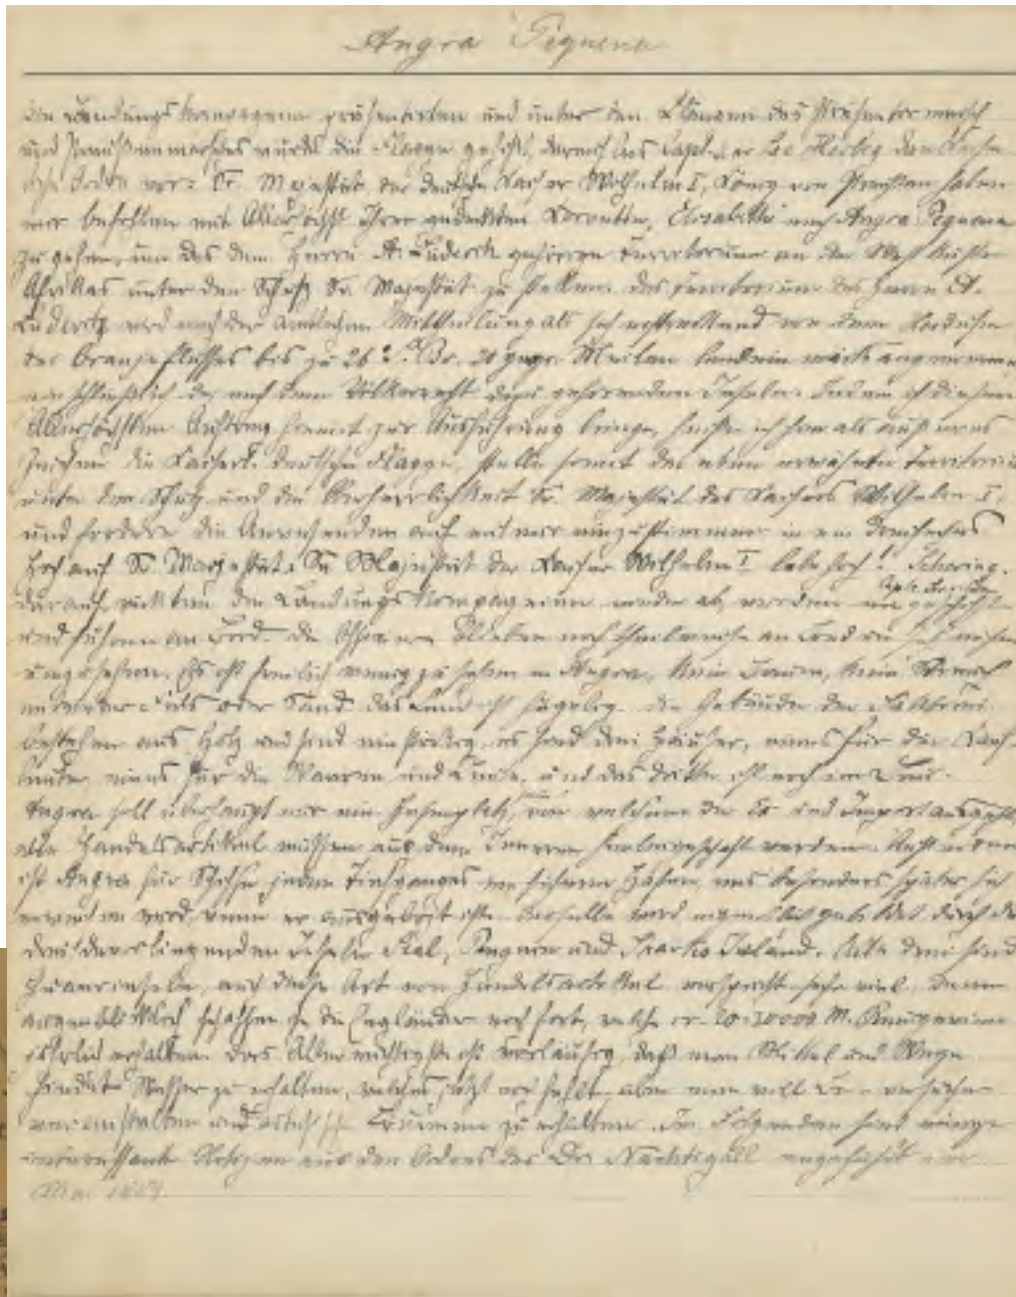 Angra Pequena
die Landungskompagnien präsentirten und unter den Klängen des Präsentirmarsch
und Preußenmarsches wurde die Flagge gehißt, darauf las Capt.
Rede vor: Sr. Majestät, der deutsche Kaiser Wilhelm I, König von Preußen haben
mir befohlen mit Allerhöchst Ihrer gedeckten Corvette, Elisabeth nach Angra Pequena
zu gehen, um das dem Herrn A. Lüderitz gehörige Territorium an der West Küste
Afrikas unter den Schutz Sr. Majestät zu stellen. Das Territorium des Herrn A.
Lüderitz wird nach der amtlichen Mittheilung als sich erstreckend von dem Nordufer
des Oranjeflusses bis zu 26° S. Br. 20 geogr. Meilen landeinwärts angenommen
einschließlich der nach dem Völkerrecht dazu gehörenden Inseln. Indem ich diesen
Allerhöchsten Auftrag hiermit zur Ausführung bringe, heiße ich hier als äußeres
Zeichen die Kaiserl. deutsche Flagge, stelle somit das eben erwähnte Territorium
unter den Schutz und die Oberherrlichkeit Sr. Majestät des Kaisers Wilhelm I.
und fordere die Anwesenden auf mit mir einzustimmen in ein dreifaches
Hoch auf Sr. Majestät. Se Majestät der Kaiser Wilhelm I lebe hoch! Schering.
Darauf rückten die Landungskompagnien wieder ab, wurden
und fuhren an Bord. Die Offiziere blieben noch theilweise an Land um sich
umzusehen. Es ist freilich wenig zu sehen in Angra, kein Baum, kein Strauch
nur Fels oder Sand. Das Land ist hügelig. Die Gebäude der Faktorei
bestehen aus Holz und sind einstöckig, es sind drei Häuser, eines für die
eines für die Waaren und Leute, und das dritte ist noch im Bau.
Angra soll überhaupt nur ein Hafenplatz, von welchem der Ex und Import ausgeht,
alle Handelsartikel müssen aus dem Inneren herbeigeschafft werden.
ist Angra für Schiffe jeden Tiefganges ein sicherer Hafen, was besonders später sich
erweisen wird, wenn er ausgebaut ist. Derselbe wird gebildet durch die
drei davorliegenden Inseln Seal, Penguin und Sharks Island. Alle drei sind
Guanoinseln, auch diese Art von Handelsartikel verspricht sehr viel, denn
augenblicklich schaffen ihn die Engländer noch fort, welche cr. 20-30000 M. Reingewinn
jährlich erhalten. Das Allerwichtigste ist vorläufig, daß man Mittel und Wege
findet Wasser zu erhalten, welches jetzt noch fehlt, aber man will
veranstalten und Brunnen zu erhalten. Im Folgenden sind einige
interessante Notizen aus den Ordres des Dr. Nachtigall angeführt
Mai 1884.